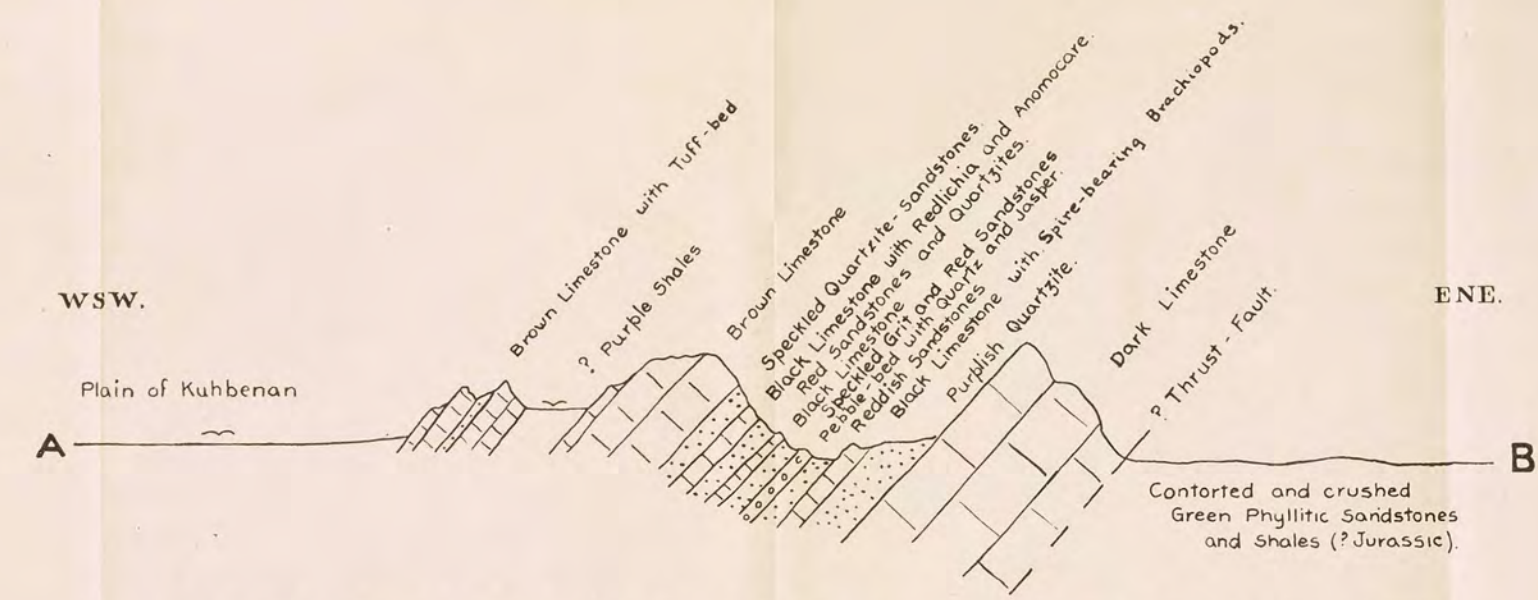 WSW.
ENE.
Plain of Kuhbenan
A
B
Brown Limestone with Tuff-bed
? Purple Shales
Brown Limestone
Speckled Quartzite-Sandstones.
Black Limestone with Redlichia and Anomocare.
Red Sandstones and Quartzites.
Black Limestone
Speckled Grit and Red Sandstones
Pebble-bed with Quartz and Jasper.
Reddish Sandstones
Black Limestone with Spire-bearing Brachiopods.
Purplish Quartzite.
Dark Limestone
? Thrust-Fault.
Contorted and crushed
Green Phyllitic Sandstones
and Shales (?Jurassic).